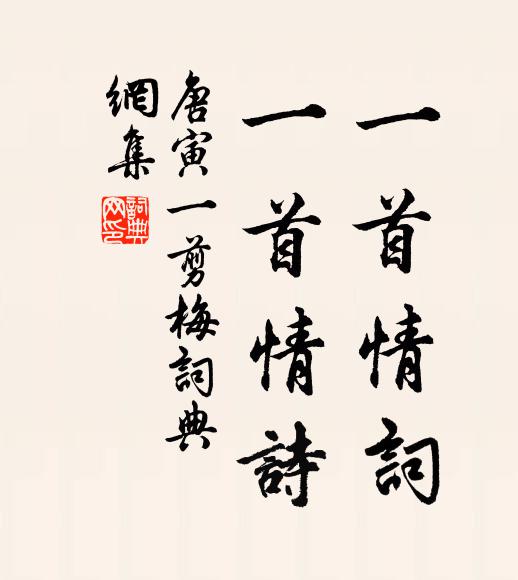 一首情詞
一首情詩
唐寅一剪梅詞典
網集
詞典网印